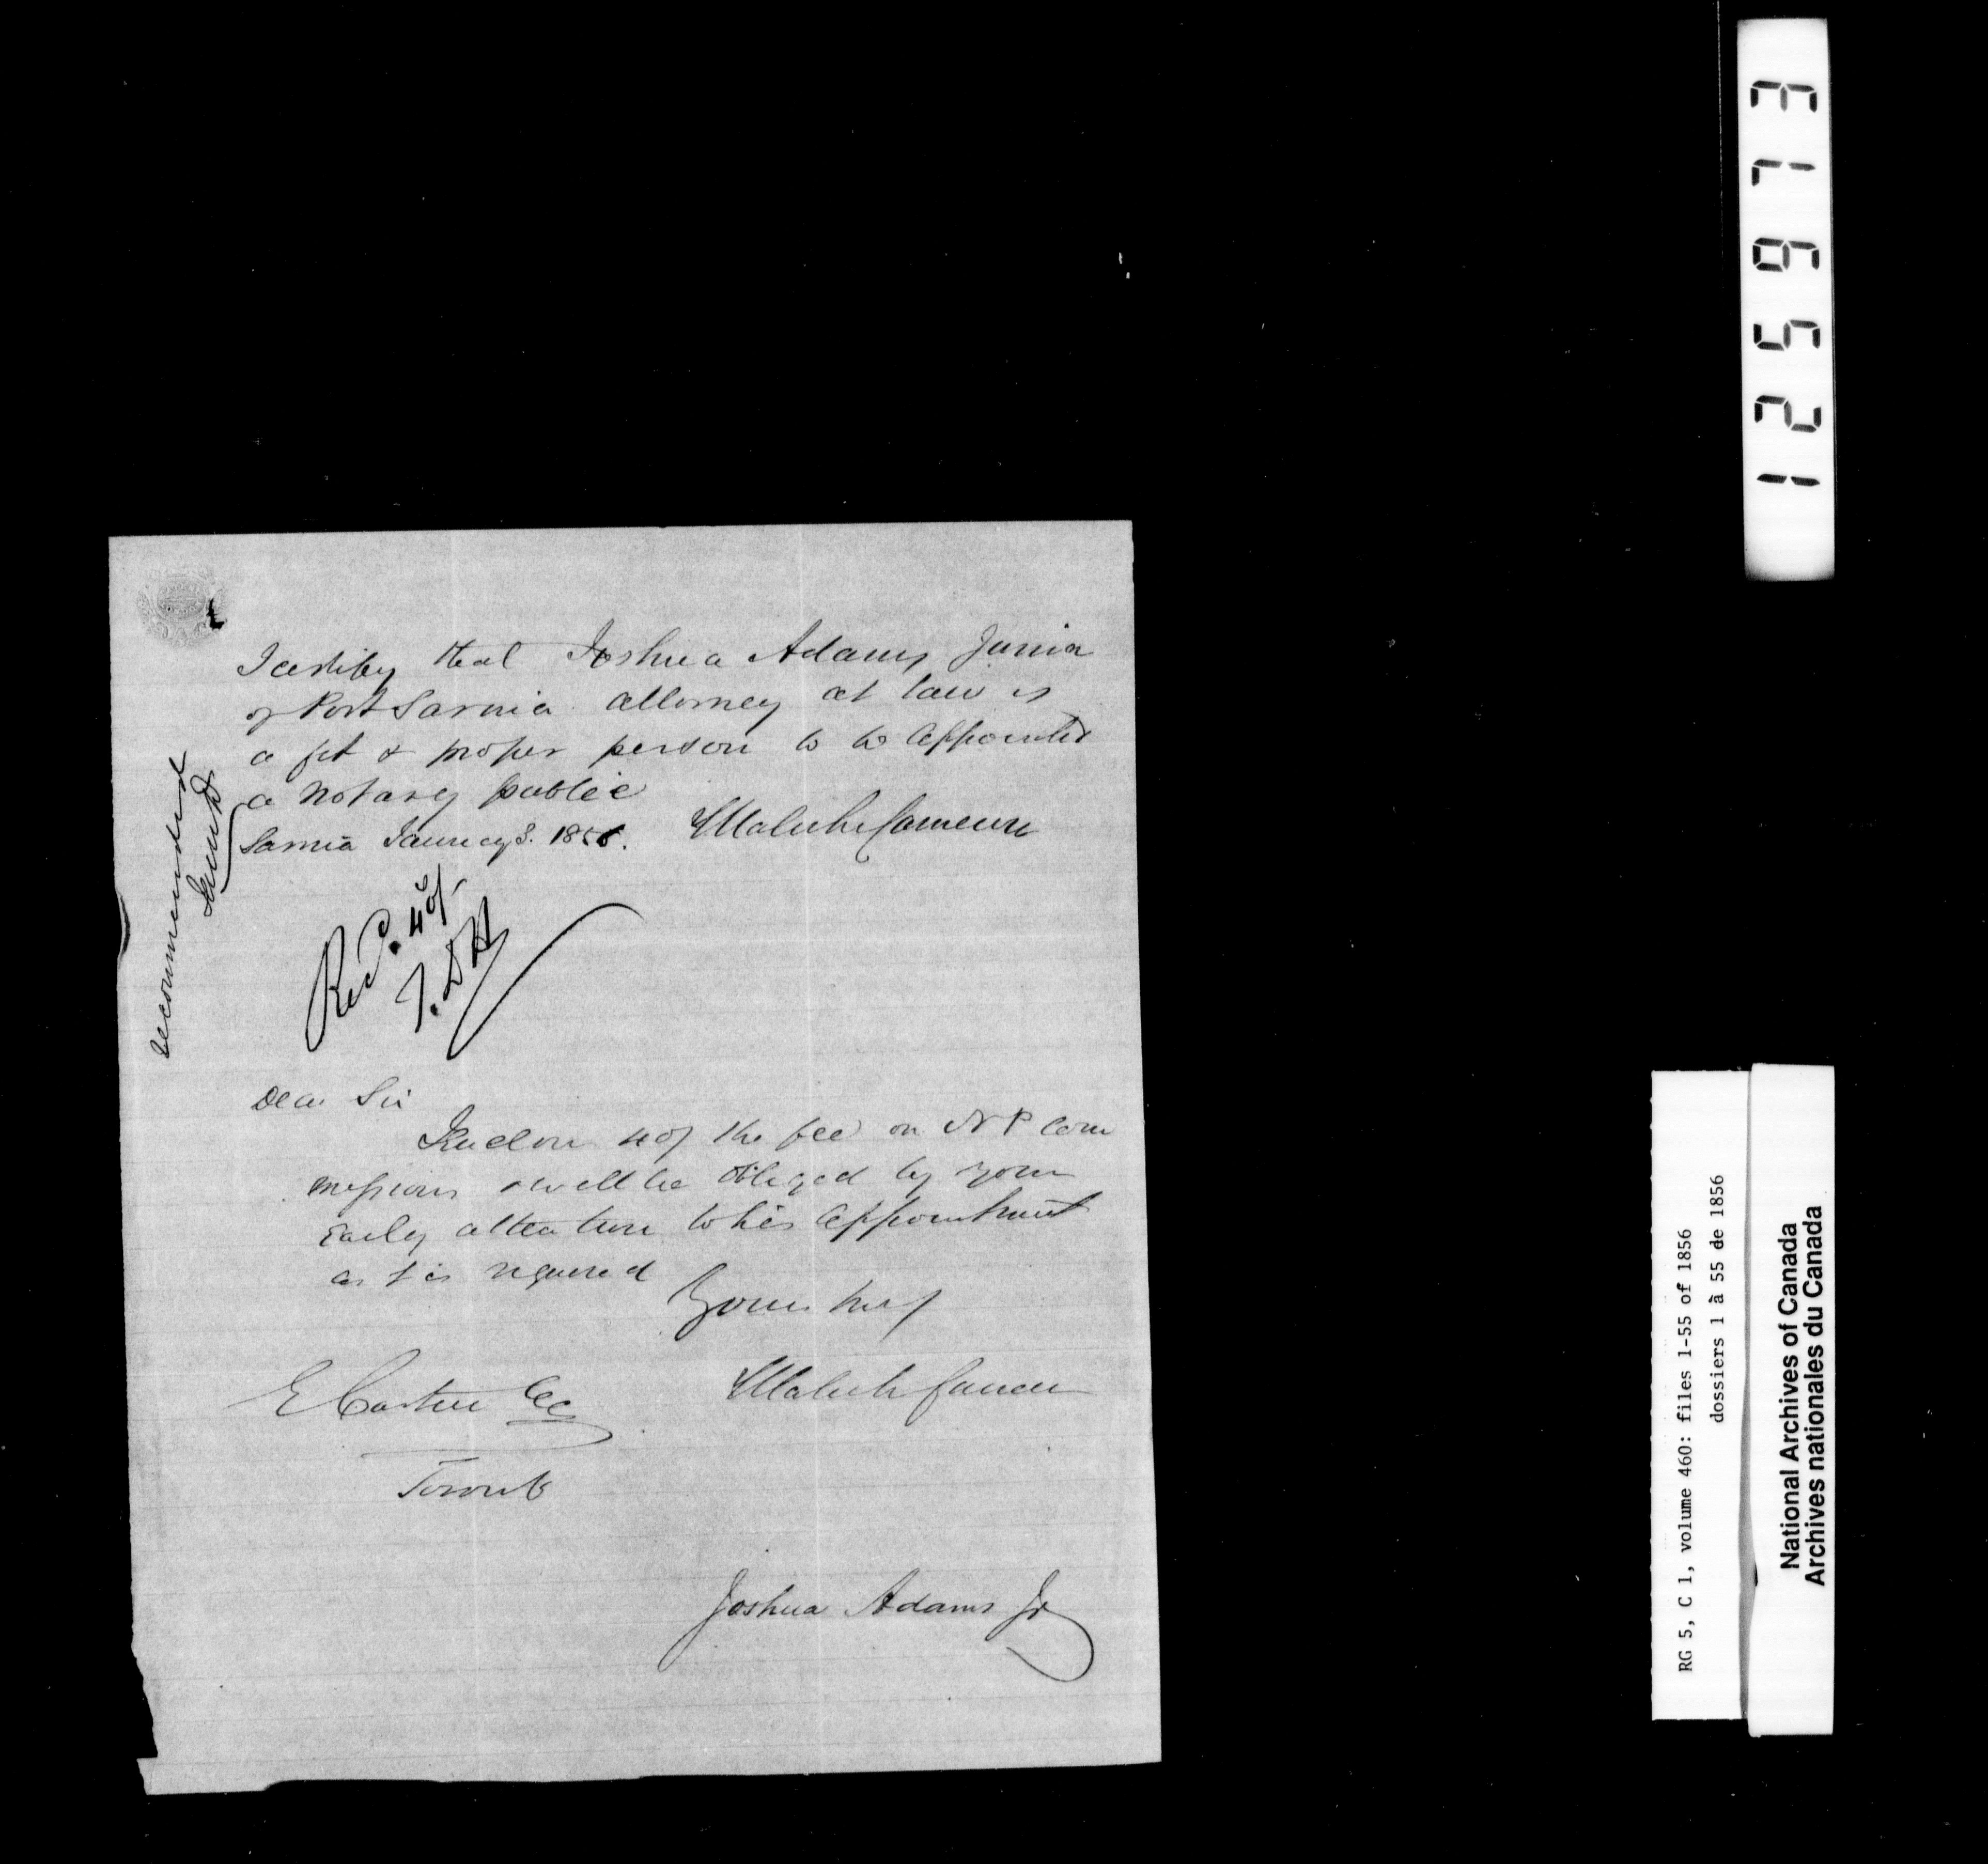 I certify that Joshua Adams Junior
of Port Sarnia attorney at law is
a fit & proper person to be appointed
a notary public
Sarnia January 3. 1856. Malcolm Cameron
recommended
Recd. 40/-
Dear Sir
I enclose 40/ the fee on N P Com
mission & will be obliged by your
early attention to his appointment
as it is required
Yours truly
Malcolm Cameron
E Cartier
Toronto
Joshua Adams Jr
125613
RG 5, C 1, volume 460: files 1-55 of 1856
dossiers 1 à 55 de 1856
National Archives of Canada
Archives nationales du Canada